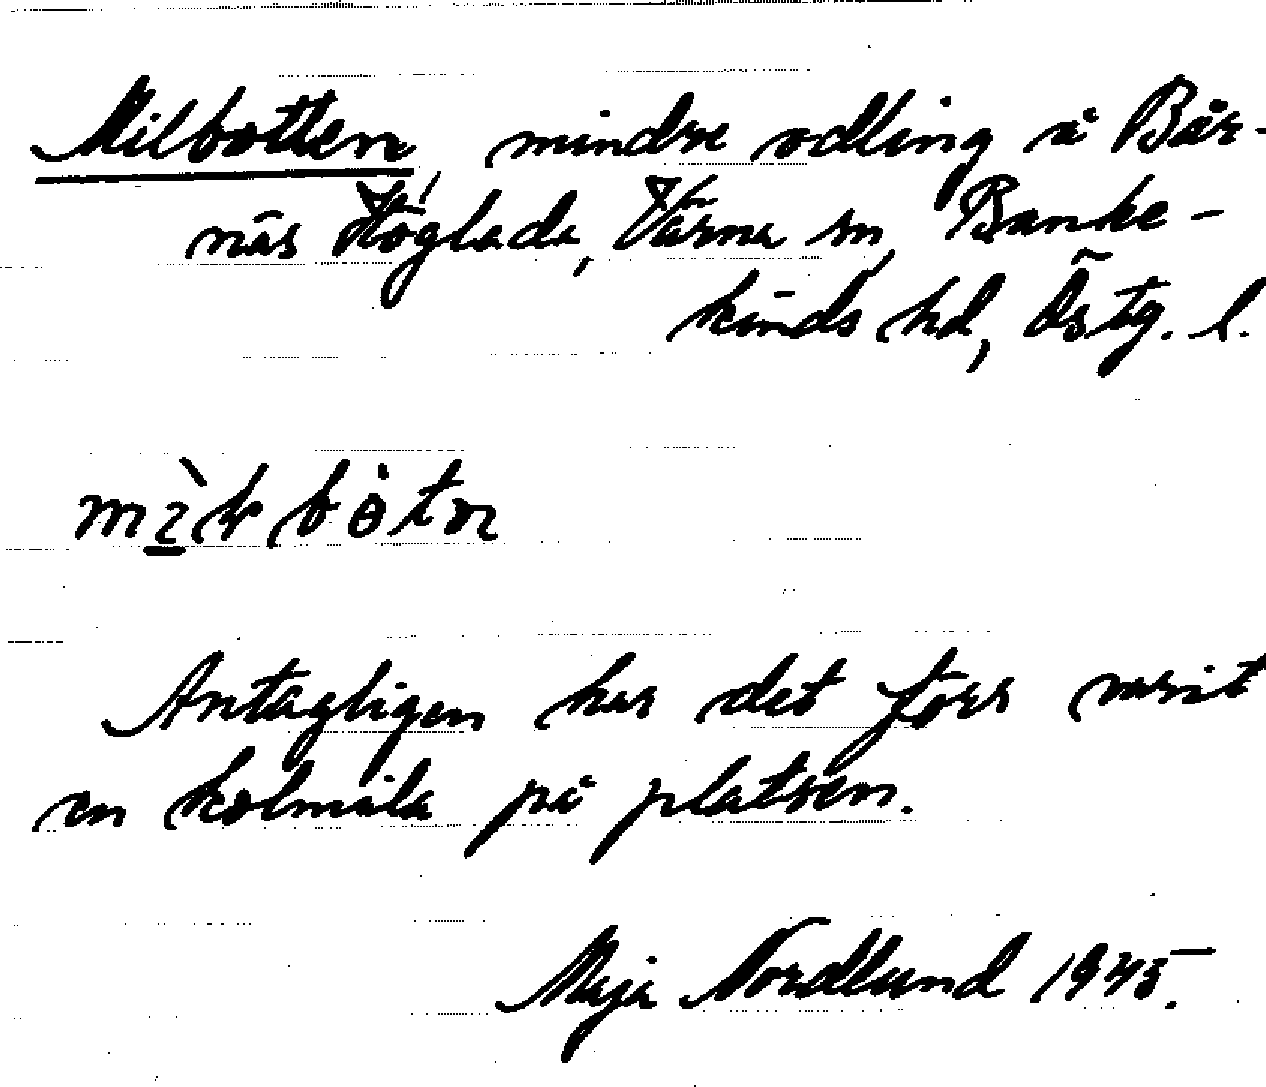 Milbotten, mindre odling å Bår-
näs Höglada, Värna sn, Banke-
kinds hd, Östg. l.
Antagligen har det förr varit
en kolmila på platsen.
Maja Nordlund 1945.